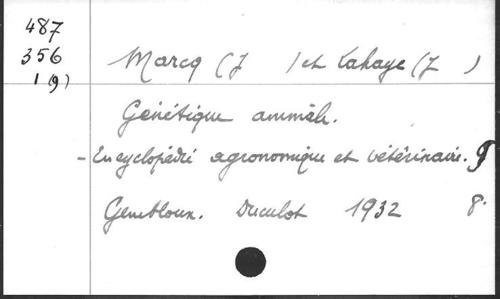 487
356
1 (9)
Marcq (J ) et Lahaye (J )
Génétique animale.
- Encyclopédie agronomique et vétérinaire. 9
Gembloux. Duculot 1932 8°